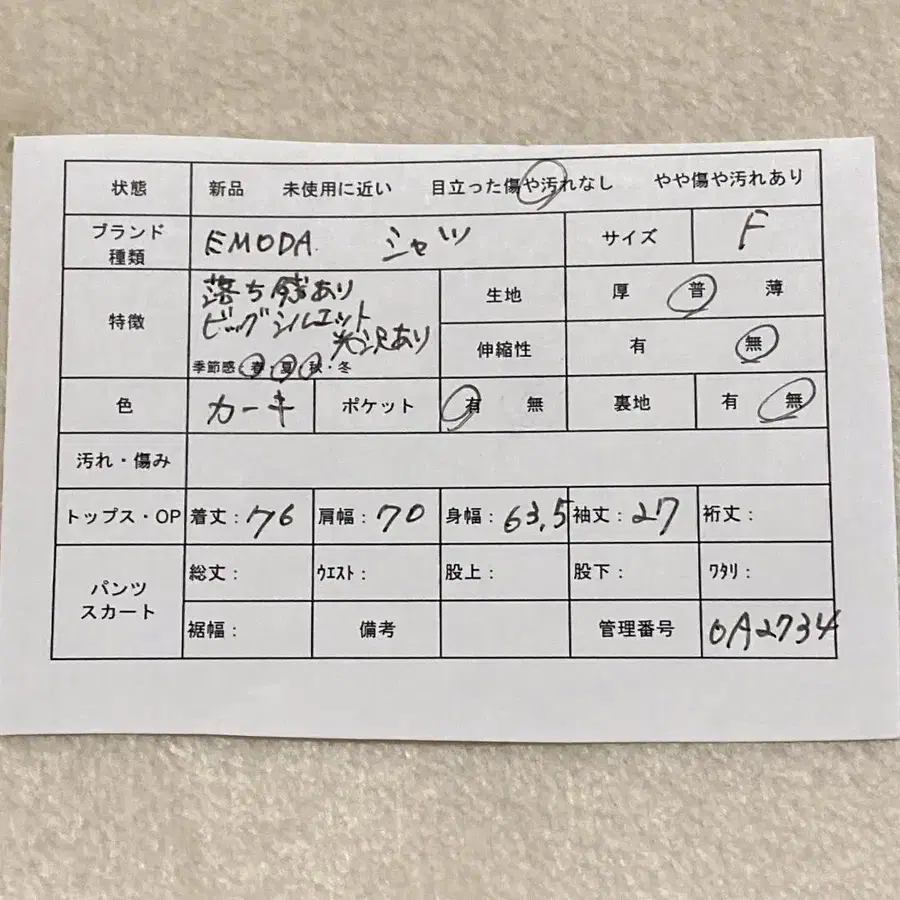 状態 新品 未使用に近い 目立った傷や汚れなし やや傷や汚れあり
ブランド
種類 EMODA. シャツ サイズ F
特徴 落ち感あり
ビッグシルエット
光沢あり
季節感 春・夏・秋・冬
生地 厚 普 薄
伸縮性 有 無
色 カーキ ポケット 有 無 裏地 有 無
汚れ・傷み
トップス・OP 着丈：76 肩幅：70 身幅：63.5 袖丈：27 裄丈：
パンツ
スカート
総丈： ウエスト： 股上： 股下： ワタリ：
裾幅： 備考 管理番号 OA2734